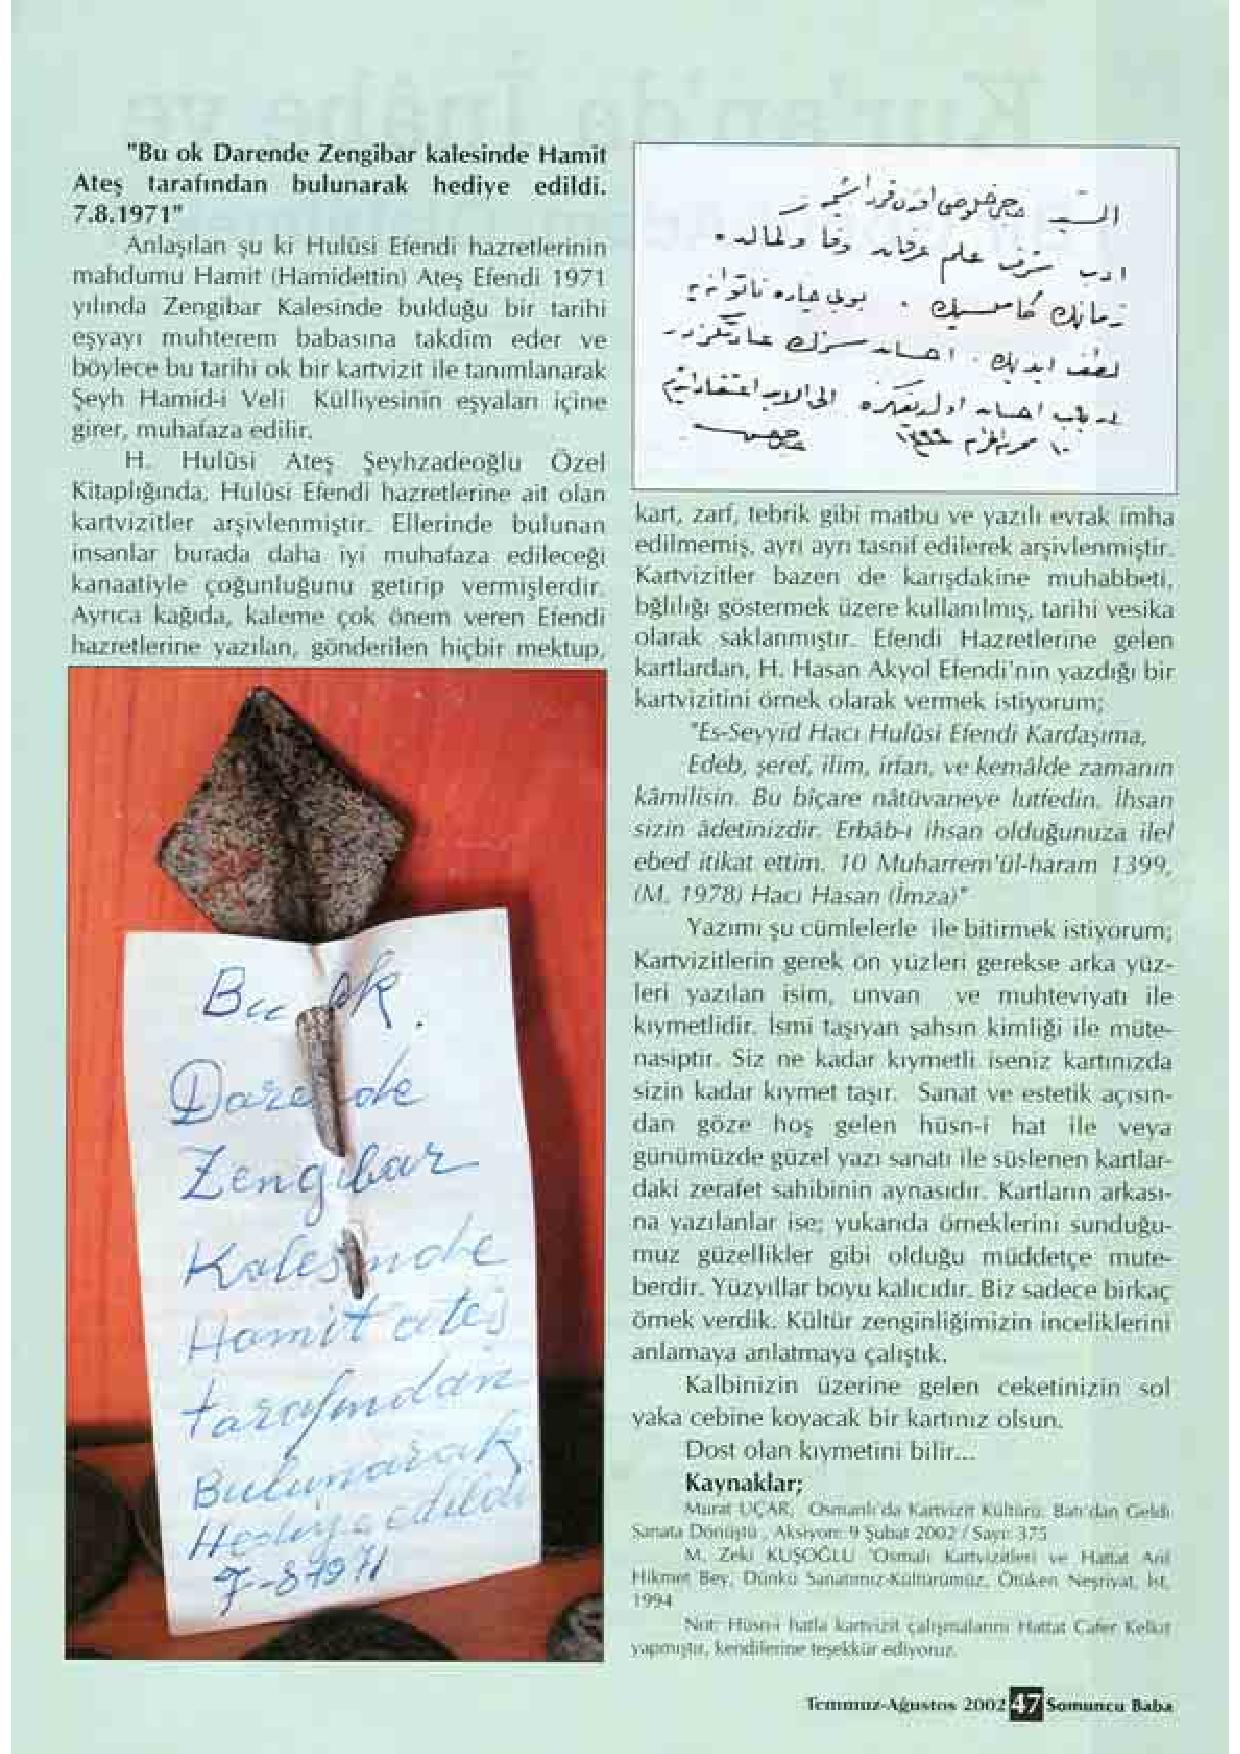 "Bu ok Darende Zengibar kalesinde Hamit
Ateş tarafından bulunarak hediye edildi.
7.8.1971"
Anlaşılan şu ki Hulûsi Efendi hazretlerinin
mahdumu Hamit (Hamidettin) Ateş Efendi 1971
yılında Zengibar Kalesinde bulduğu bir tarihi
eşyayı muhterem babasına takdim eder ve
böylece bu tarihi ok bir kartvizit ile tanımlanarak
Şeyh Hamid-i Veli Külliyesinin eşyaları içine
girer, muhafaza edilir.
H. Hulûsi Ateş Şeyhzadeoğlu Özel
Kitaplığında, Hulûsi Efendi hazretlerine ait olan
kartvizitler arşivlenmiştir. Ellerinde bulunan
insanlar burada daha iyi muhafaza edileceği
kanaatiyle çoğunluğunu getirip vermişlerdir.
Ayrıca kağıda, kaleme çok önem veren Efendi
hazretlerine yazılan, gönderilen hiçbir mektup,
Bu ok
Darende
Zengibar
Kalesinde
Hamit ateş
tarafından
Bulunarak
Hediye edildi
7-8 1971
kart, zarf, tebrik gibi matbu ve yazılı evrak imha
edilmemiş, ayrı ayrı tasnif edilerek arşivlenmiştir.
Kartvizitler bazen de karışdakine muhabbeti,
bğlılığı göstermek üzere kullanılmış, tarihi vesika
olarak saklanmıştır. Efendi Hazretlerine gelen
kartlardan, H. Hasan Akyol Efendi'nin yazdığı bir
kartvizitini örnek olarak vermek istiyorum;
"Es-Seyyid Hacı Hulûsi Efendi Kardaşıma,
Edeb, şeref, ilim, irfan, ve kemâlde zamanın
kâmilisin. Bu biçare nâtüvaneye lutfedin. İhsan
sizin âdetinizdir. Erbâb-ı ihsan olduğunuza ilel
ebed itikat ettim. 10 Muharrem'ül-haram 1399,
(M. 1978) Hacı Hasan (İmza)"
Yazımı şu cümlelerle ile bitirmek istiyorum;
Kartvizitlerin gerek ön yüzleri gerekse arka yüz-
leri yazılan isim, unvan ve muhteviyatı ile
kıymetlidir. İsmi taşıyan şahsın kimliği ile müte-
nasiptir. Siz ne kadar kıymetli iseniz kartınızda
sizin kadar kıymet taşır. Sanat ve estetik açısın-
dan göze hoş gelen hüsn-i hat ile veya
günümüzde güzel yazı sanatı ile süslenen kartlar-
daki zerafet sahibinin aynasıdır. Kartların arkası-
na yazılanlar ise; yukarıda örneklerini sunduğu-
muz güzellikler gibi olduğu müddetçe mute-
berdir. Yüzyıllar boyu kalıcıdır. Biz sadece birkaç
örnek verdik. Kültür zenginliğimizin inceliklerini
anlamaya anlatmaya çalıştık.
Kalbinizin üzerine gelen ceketinizin sol
yaka cebine koyacak bir kartınız olsun.
Dost olan kıymetini bilir...
Kaynaklar;
Murat UÇAR, Osmanlı'da Kartvizit Kültürü, Batı'dan Geldi
Sanata Dönüştü , Aksiyon: 9 Şubat 2002 / Sayı: 375
M. Zeki KUŞOĞLU "Osmalı Kartvizitleri ve Hattat Arif
Hikmet Bey, Dünkü Sanatımız-Kültürümüz, Ötüken Neşriyat, İst.
1994
Not: Hüsn-i hatla kartvizit çalışmalarını Hattat Cafer Kelkit
yapmıştır, kendilerine teşekkür ediyoruz.
Temmuz-Ağustos 2002 47 Somuncu Baba